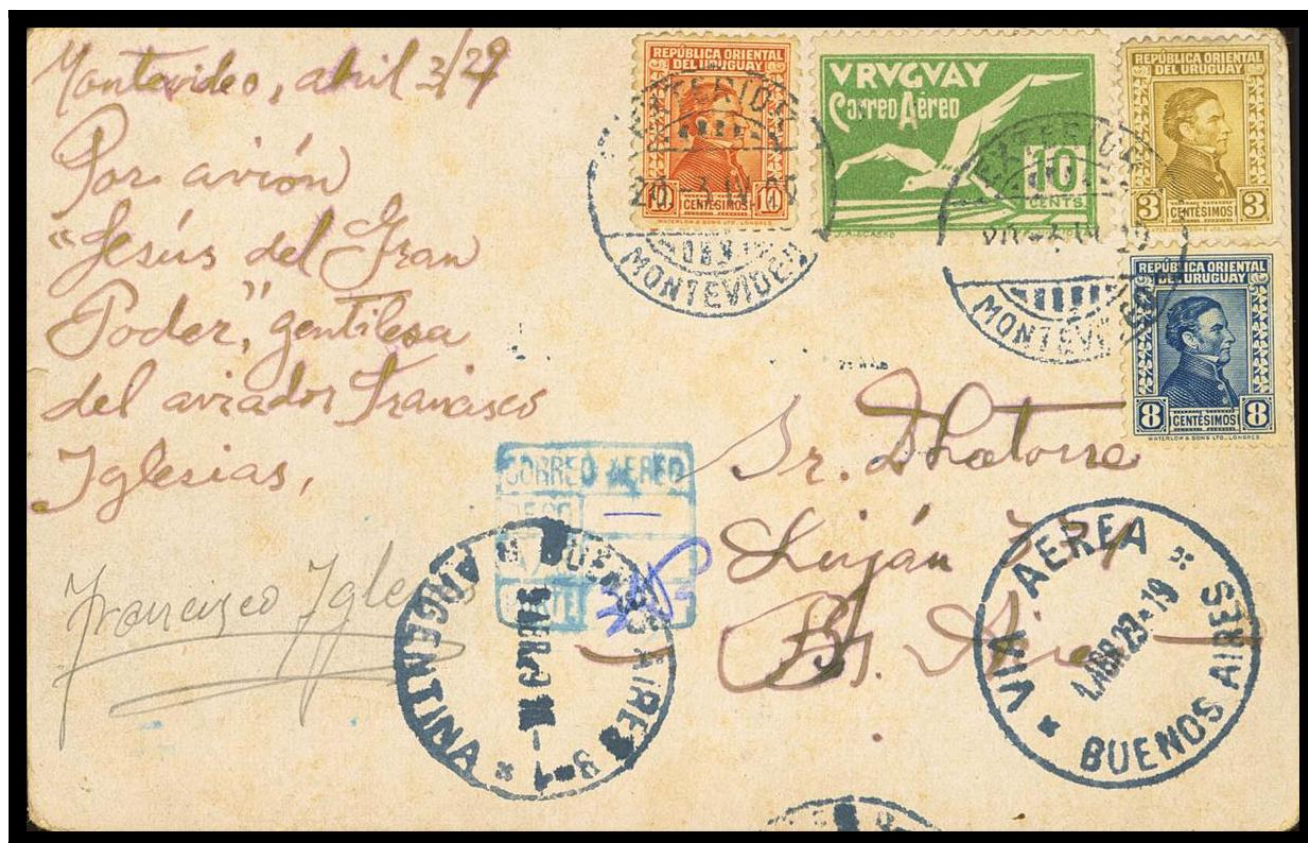 Montevideo, abril 3/29
Por avión
"Jesús del Gran
Poder," gentileza
del aviador Francisco
Iglesias,
Francisco Igle
REPÚBLICA ORIENTAL
DEL URUGUAY
10 CENTÉSIMOS 10
WATERLOW & SONS LTD., LONDRES
VRVGVAY
Correo Aéreo
10
CENTS
REPÚBLICA ORIENTAL
DEL URUGUAY
3 CENTÉSIMOS 3
REPÚBLICA ORIENTAL
DEL URUGUAY
8 CENTÉSIMOS 8
WATERLOW & SONS LTD., LONDRES
EXTERIOR
20 - 3 IV 29
MONTEVIDEO
EXTERIOR
20 - 3 IV 29
MONTEVIDEO
CORREO AEREO
Sr.
Luján
Bs. Aires
BUENOS AIRES
ARGENTINA
VIA AEREA
4 ABR 29 * 19
BUENOS AIRES